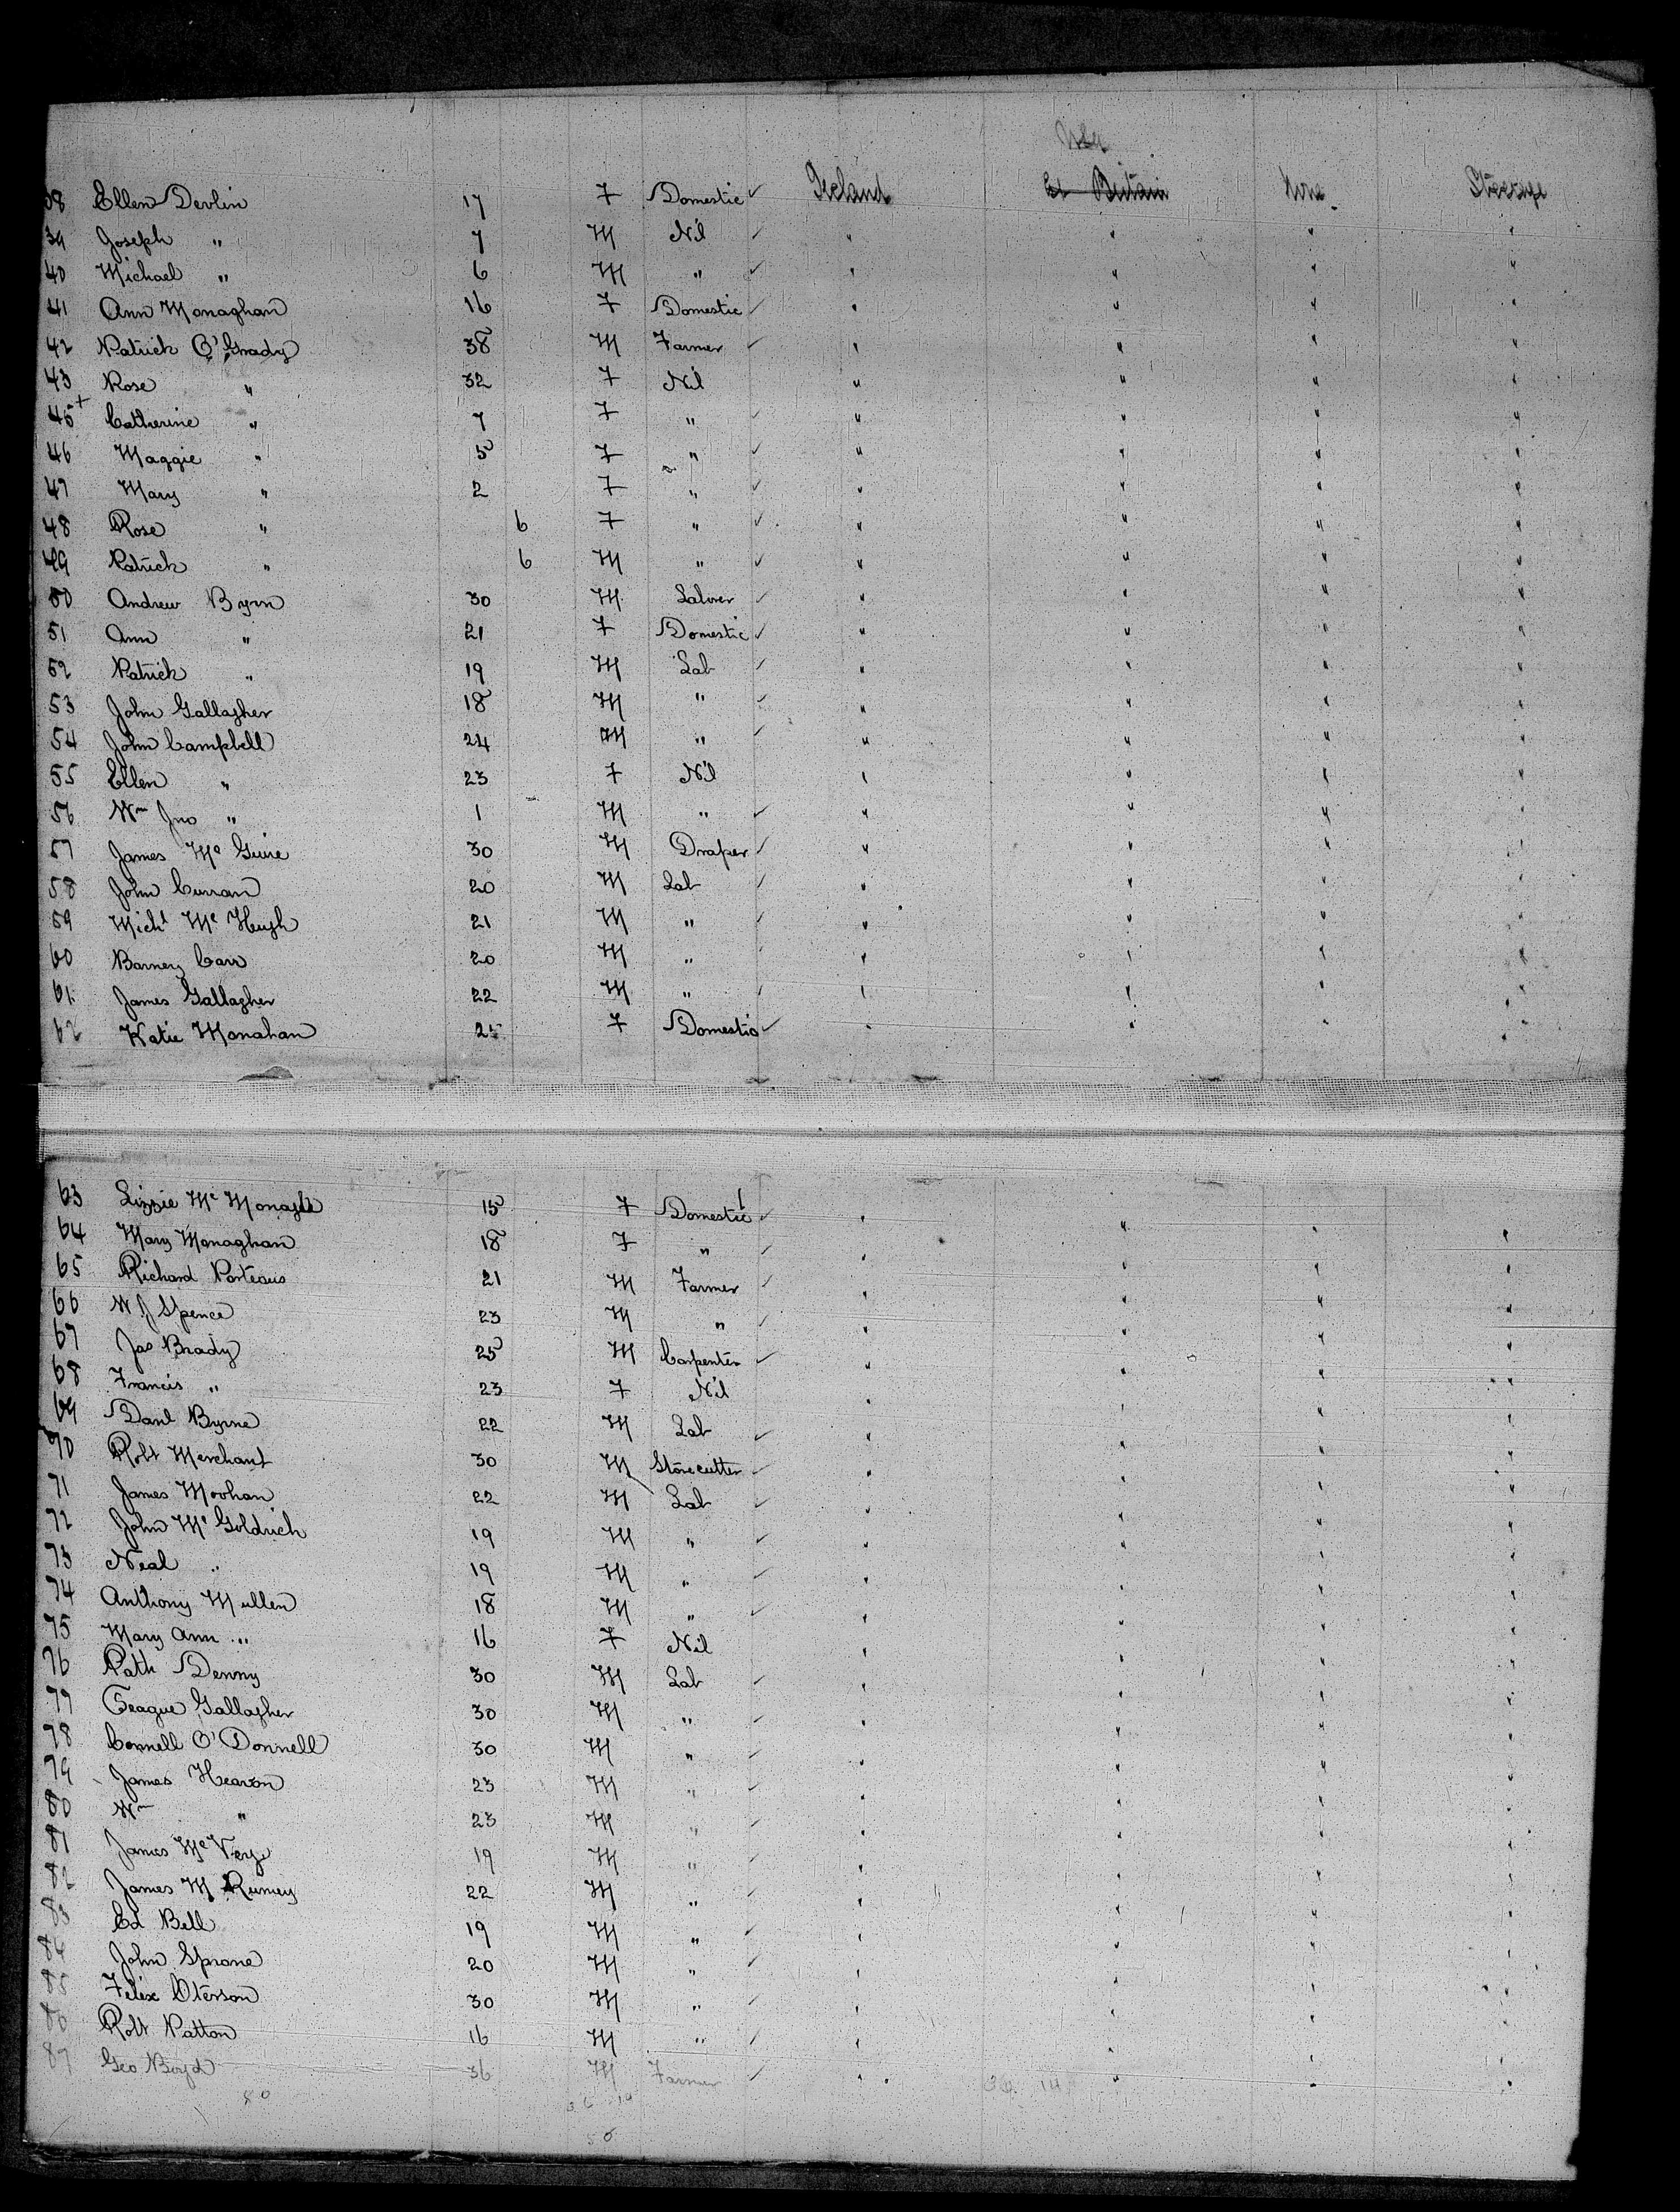 USA
38 Ellen Devlin 17 F Domestic ✓ Ireland Gt Britain None Steerage
39 Joseph " 7 M Nil ✓ " " " "
40 Michael " 6 M " ✓ " " " "
41 Ann Monaghan 16 F Domestic ✓ " " " "
42 Patrick O'Grady 38 M Farmer ✓ " " " "
43 Rose " 32 F Nil " " " "
45 + Catherine " 7 F " ✓ " " " "
46 Maggie " 5 F " ✓ " " " "
47 Mary " 2 F " ✓ " " " "
48 Rose " 6 F " ✓ " " " "
49 Patrick " 6 M " ✓ " " " "
50 Andrew Byrn 30 M Labover ✓ " " " "
51 Ann " 21 F Domestic ✓ " " " "
52 Patrick " 19 M Lab ✓ " " " "
53 John Gallagher 18 M " ✓ " " " "
54 John Campbell 24 M " ✓ " " " "
55 Ellen " 23 F Nil " " " "
56 Wm Jno " 1 M " ✓ " " " "
57 James Mc Guire 30 M Draper ✓ " " " "
58 John Curran 20 M Lab ✓ " " " "
59 Michl Mc Hugh 21 M " ✓ " " " "
60 Barney Carr 20 M " ✓ " " " "
61 James Gallagher 22 M " ✓ " " " "
62 Katie Monahan 25 F Domestic ✓ " " " "
63 Lizzie Mc Monagle 15 F Domestic ✓ " " " "
64 Mary Monaghan 18 F " ✓ " " " "
65 Richard Porteaus 21 M Farmer ✓ " " " "
66 W J Spence 23 M " ✓ " " " "
67 Jas Brady 25 M Carpenter ✓ " " " "
68 Francis " 23 F Nil " " " "
69 Danl Byrne 22 M Lab ✓ " " " "
70 Robt Merchant 30 M Stonecutter ✓ " " " "
71 James Moohan 22 M Lab ✓ " " " "
72 John Mc Goldrich 19 M " ✓ " " " "
73 Neal " 19 M " ✓ " " " "
74 Anthony Mullen 18 M " ✓ " " " "
75 Mary Ann " 16 F Nil " " " "
76 Patk Denny 30 M Lab ✓ " " " "
77 Teague Gallagher 30 M " ✓ " " " "
78 Connell O'Donnell 30 M " ✓ " " " "
79 James Hearon 23 M " ✓ " " " "
80 Wm " 23 M " ✓ " " " "
81 James Mc Vey 19 M " ✓ " " " "
82 James M 22 M " ✓ " " " "
83 Ed Bell 19 M " ✓ " " " "
84 John Sprone 20 M " ✓ " " " "
85 Felix 30 M " ✓ " " " "
86 Robt Patton 16 M " ✓ " " " "
87 Geo Boyd 36 M Farmer ✓ " " " "
50
50